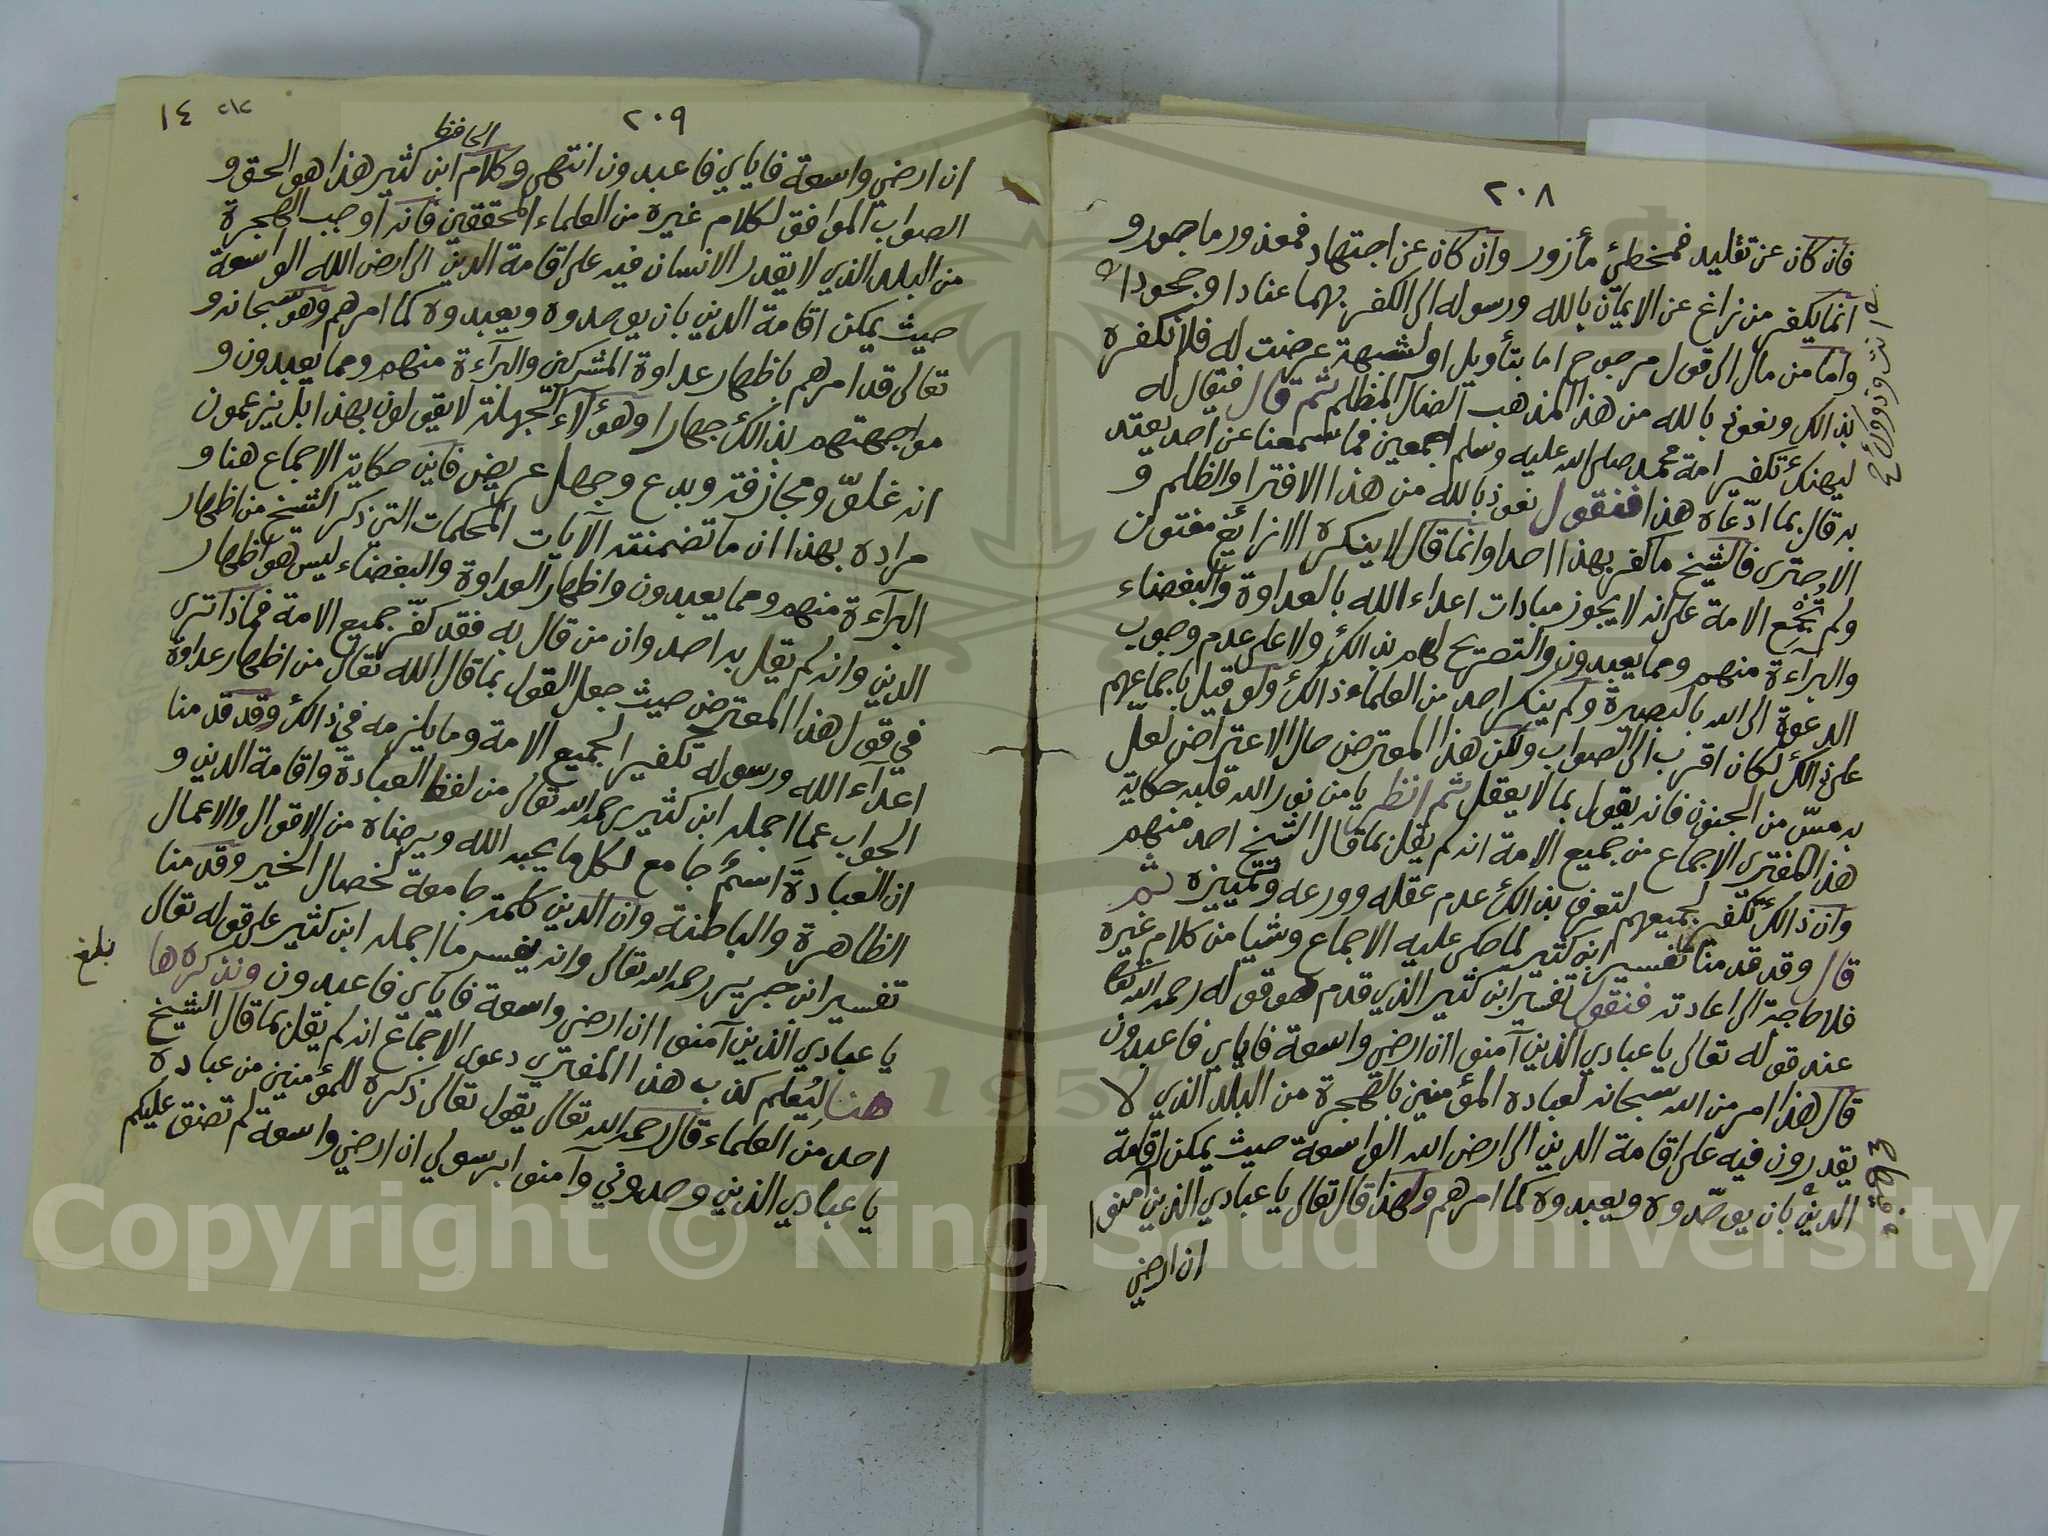 ٢٠٨
فان كان عن تقليد فمخطئ مأزور وان كان عن اجتهاد فمعذور ماجور و
انما يكفر من زاغ عن الايمان بالله ورسوله الى الكفر بهما عنادا وجحودا
واما من مال الى قول مرجوح اما بتأويل او لشبهة عرضت له فلا نكفره
بذالك ونعوذ بالله من هذا المذهب الضال المظلم ثم قال فيقال له
ليهنك تكفير امة محمد صلى الله عليه وسلم اجمعين فما سمعنا عن احد يعتد
به قال بما ادّعاه هذا فنقول نعوذ بالله من هذا الافترا والظلم و
الاجترى فالشيخ ما كفر بهذا احدا وانما قال لا ينكره الا زائغ مفتون
ولم تجمع الامة على انه لا يجوز مبادات اعداء الله بالعداوة والبغضاء
والبرآءة منهم ومما يعبدون والتصريح لهم بذالك ولا على عدم وجوب
الدعوة الى الله بالبصيرة ولم ينكر احد من العلماء ذالك ولو قيل باجماعهم
على ذالك لكان اقرب الى الصواب ولكن هذا المعترض حال الاعتراض لعل
به مسّ من الجنون فانه يقول بما لا يعقل ثم انظر يا من نور الله قلبه حكاية
هذا المفتري الاجماع من جميع الامة انه لم يقل بما قال الشيخ احد منهم
وان ذالك تكفير لجميعهم لتعرف بذالك عدم عقله وورعه وتمييزه ثم
قال وقد قدمنا تفسير ابن كثير لما حكى عليه الاجماع وشيا من كلام غيره
فلا حاجة الى اعادته فنقول تفسير ابن كثير الذي قدم هو قوله رحمه الله
عند قوله تعالى يا عبادي الذين آمنوا ان ارضي واسعة فاياي فاعبدون
قال هذا امر من الله سبحانه لعباده المؤمنين بالهجرة من البلد الذي لا
يقدرون فيه على اقامة الدين الى ارض الله الواسعة حيث يمكن اقامة
الدين بان يوحّدوه ويعبدوه كما امرهم ولهذا قال تعالى يا عبادي الذين آمنوا
ان ارضي
٢٠٩
١٤
الحافظ
ان ارضي واسعة فاياي فاعبدون انتهى وكلام ابن كثير هذا هو الحق و
الصواب الموافق لكلام غيره من العلماء المحققين فانه اوجب الهجرة
من البلد الذي لا يقدر الانسان فيه على اقامة الدين الى ارض الله الواسعة
حيث يمكن اقامة الدين بان يوحدوه ويعبدوه كما امرهم وهو سبحانه و
تعالى قد امرهم باظهار عداوة المشركين والبرآءة منهم ومما يعبدون و
مواجهتهم بذالك جهارا وهؤلآء الجهلة لا يقولون بهذا بل يزعمون
انه غلوّ ومجازفة وبدع وجهل عريض فاين حكاية الاجماع هنا و
مراده بهذا ان ما تضمنته الآيات المحكمات التي ذكر الشيخ من اظهار
البرآءة منهم ومما يعبدون واظهار العداوة والبغضاء ليس هو اظهار
الدين وانه لم يقل به احد وان من قال به فقد كفّر جميع الامة فماذا ترى
في قول هذا المعترض حيث جعل القول بما قال الله تعالى من اظهار عداوة
اعدآء الله ورسوله تكفيرا لجميع الامة وما يلزمه في ذالك وقد قدمنا
الجواب عما اجمله ابن كثير رحمه الله تعالى من لفظ العبادة واقامة الدين و
ان العبادة اسم جامع لكل ما يحبه الله ويرضاه من الاقوال والاعمال
الظاهرة والباطنة وان الدين كلمة جامعة لخصال الخير وقدمنا
تفسير ابن جرير رحمه الله تعالى وانه يفسر ما اجمله ابن كثير على قوله تعالى
يا عبادي الذين آمنوا ان ارضي واسعة فاياي فاعبدون ونذكره ها
بلغ
هنا ليُعلم كذب هذا المفتري دعوى الاجماع انه لم يقل بما قال الشيخ
احد من العلماء قال رحمه الله تعالى يقول تعالى ذكره للمؤمنين من عباده
يا عبادي الذين وحدوني وآمنوا برسولي ان ارضي واسعة لم تضق عليكم
1957
Copyright © King Saud University